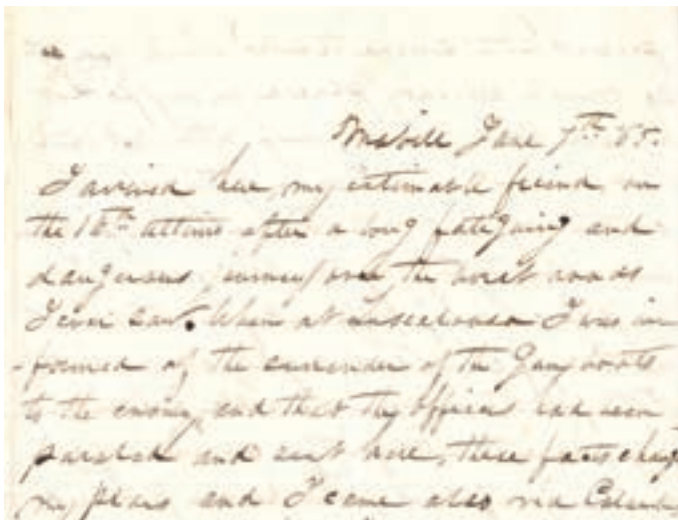 Mobile June 7th 65.
I arrived here, my estimable friend, on
the 16th ultimo after a long fatiguing and
dangerous journey over the worst roads
I ever saw. When at Tuscaloosa I was in
-formed of the surrender of the Gun boats
to the enemy, and that the officers had been
paroled and sent here, these facts
my plans and I came also via